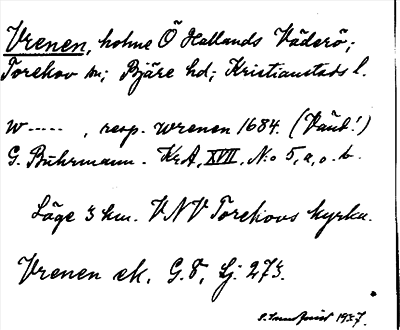 Vrenen, holme Ö Hallands Väderö;
Torekov sn; Bjäre hd; Kristianstads l.
W-----, resp. Wrenen 1684. (Väub!)
G. Buhrmann. KrA, XVII, No 5, a, o. b.
Läge 3 km. VNV Torekovs kyrka.
Vrenen ek. G.8, Lj. 273.
1937.